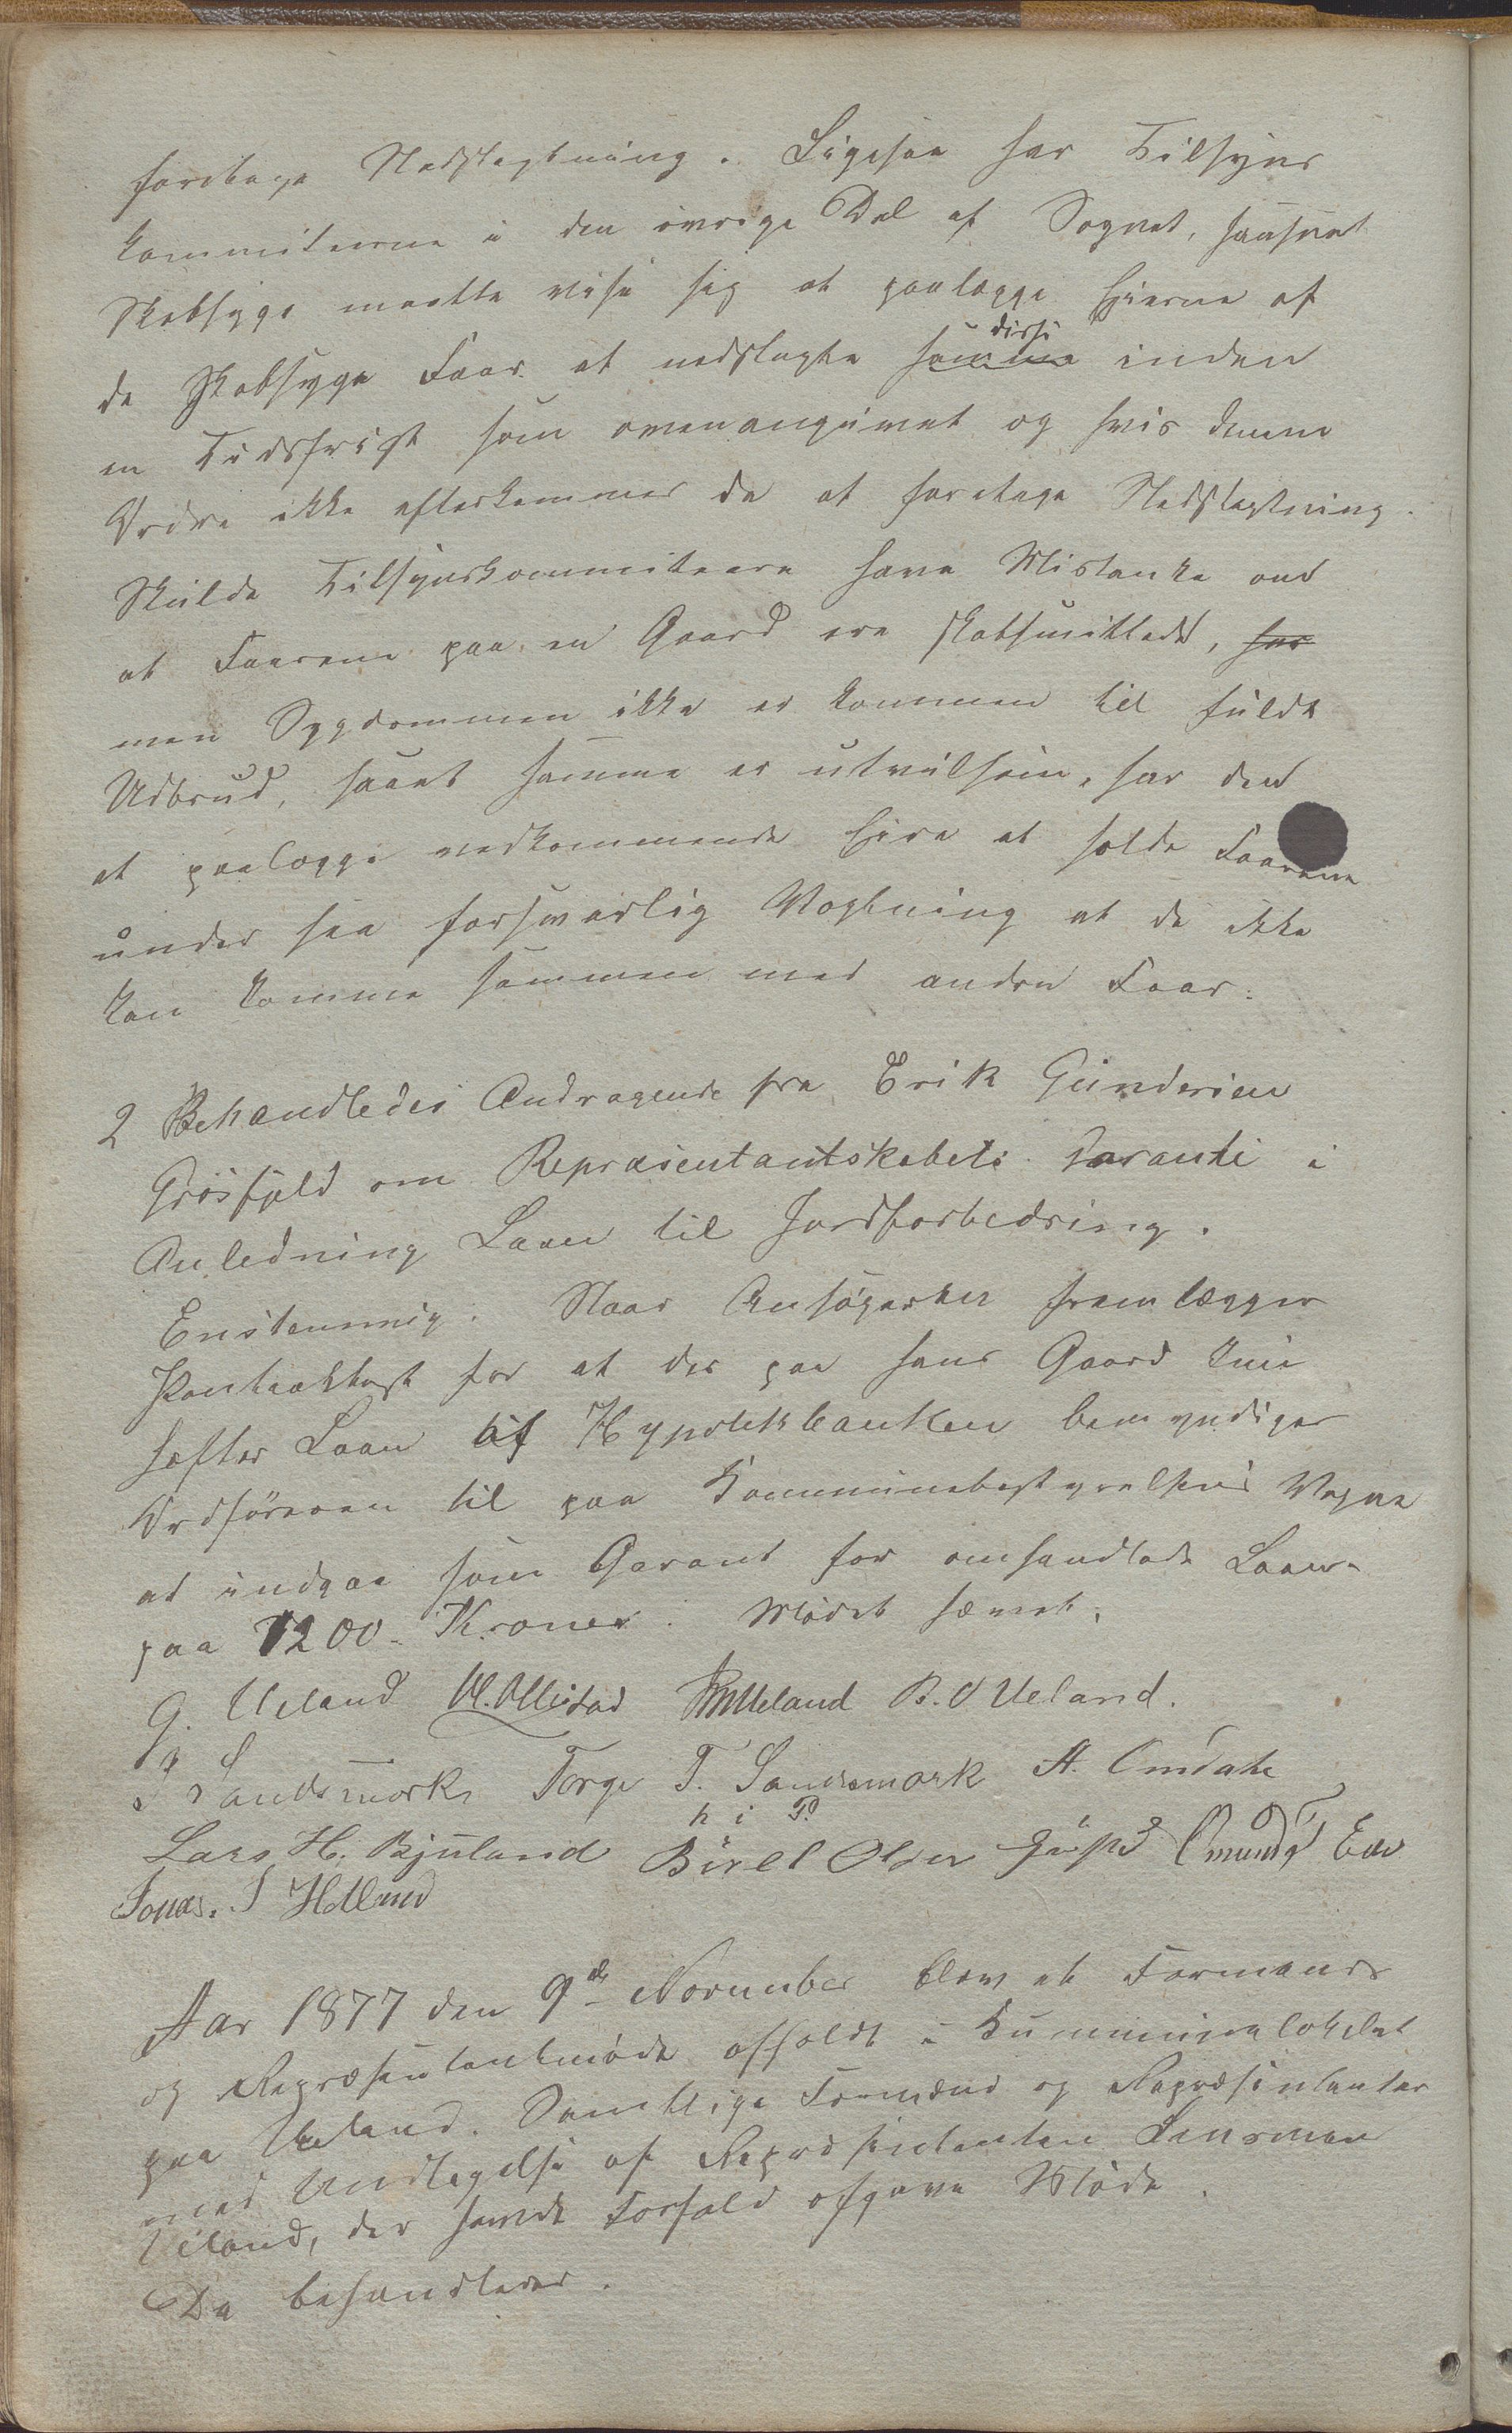 foretage Nedslagtning. Ligesaa har Tilsyns
kommiteerne i den øvrige Del af Sognet, saafremt
Skabsyge maatte vise sig at paalægge Eierne af
de skabsyge Faar at nedslagte samme disse inden
en Tidsfrist som ovenangivet og hvis denne
Ordre ikke efterkommes da at foretage Nedslagtning.
Skulde Tilsynskommiteerne have Mistanke om
at Faarene paa en Gaard ere skabsmittede, har
men Sygdommen ikke er kommen til fuldt
Udbrud, saaat samme er utvilsom, har den
at paalægge vedkommende Eier at holde Faarene
under saa forsvarlig Vogtning at de ikke
kan komme sammen med andre Faar.
2 Behandledes Andragende fra Erik Gundersen
Grøsfjeld om Repræsentantskabets Garanti i
Anledning Laan til Jordforbedring.
Enstemmig. Naar Ansøgeren fremlægger
Panteattest for at der paa hans Gaard kun
hefter Laan af Hypothekbanken bemyndiges
Ordføreren til paa Kommunebestyrelsens Vegne
at indgaa som Garant for omhandlede Laan
paa 1200 Kroner. Mødet hævet.
G. Ueland M. Ollestad Ueland B. O Ueland.
Sandsmork Torge T. Sandsmark A. Omdale
Lars H. Bjuland Børel Olsen Omund Eee
h i P.
Jonas. J Hetland
Aar 1877 den 9de November blev et Formands
og Repræsentantmøde afholdt i Kummunelokalet
paa Ueland. Samtlige Formænd og Repræsentanter
med Undtagelse af Repræsentanten Lensmand
Ueland, der havde Forfald afgave Møde.
Da behandledes.